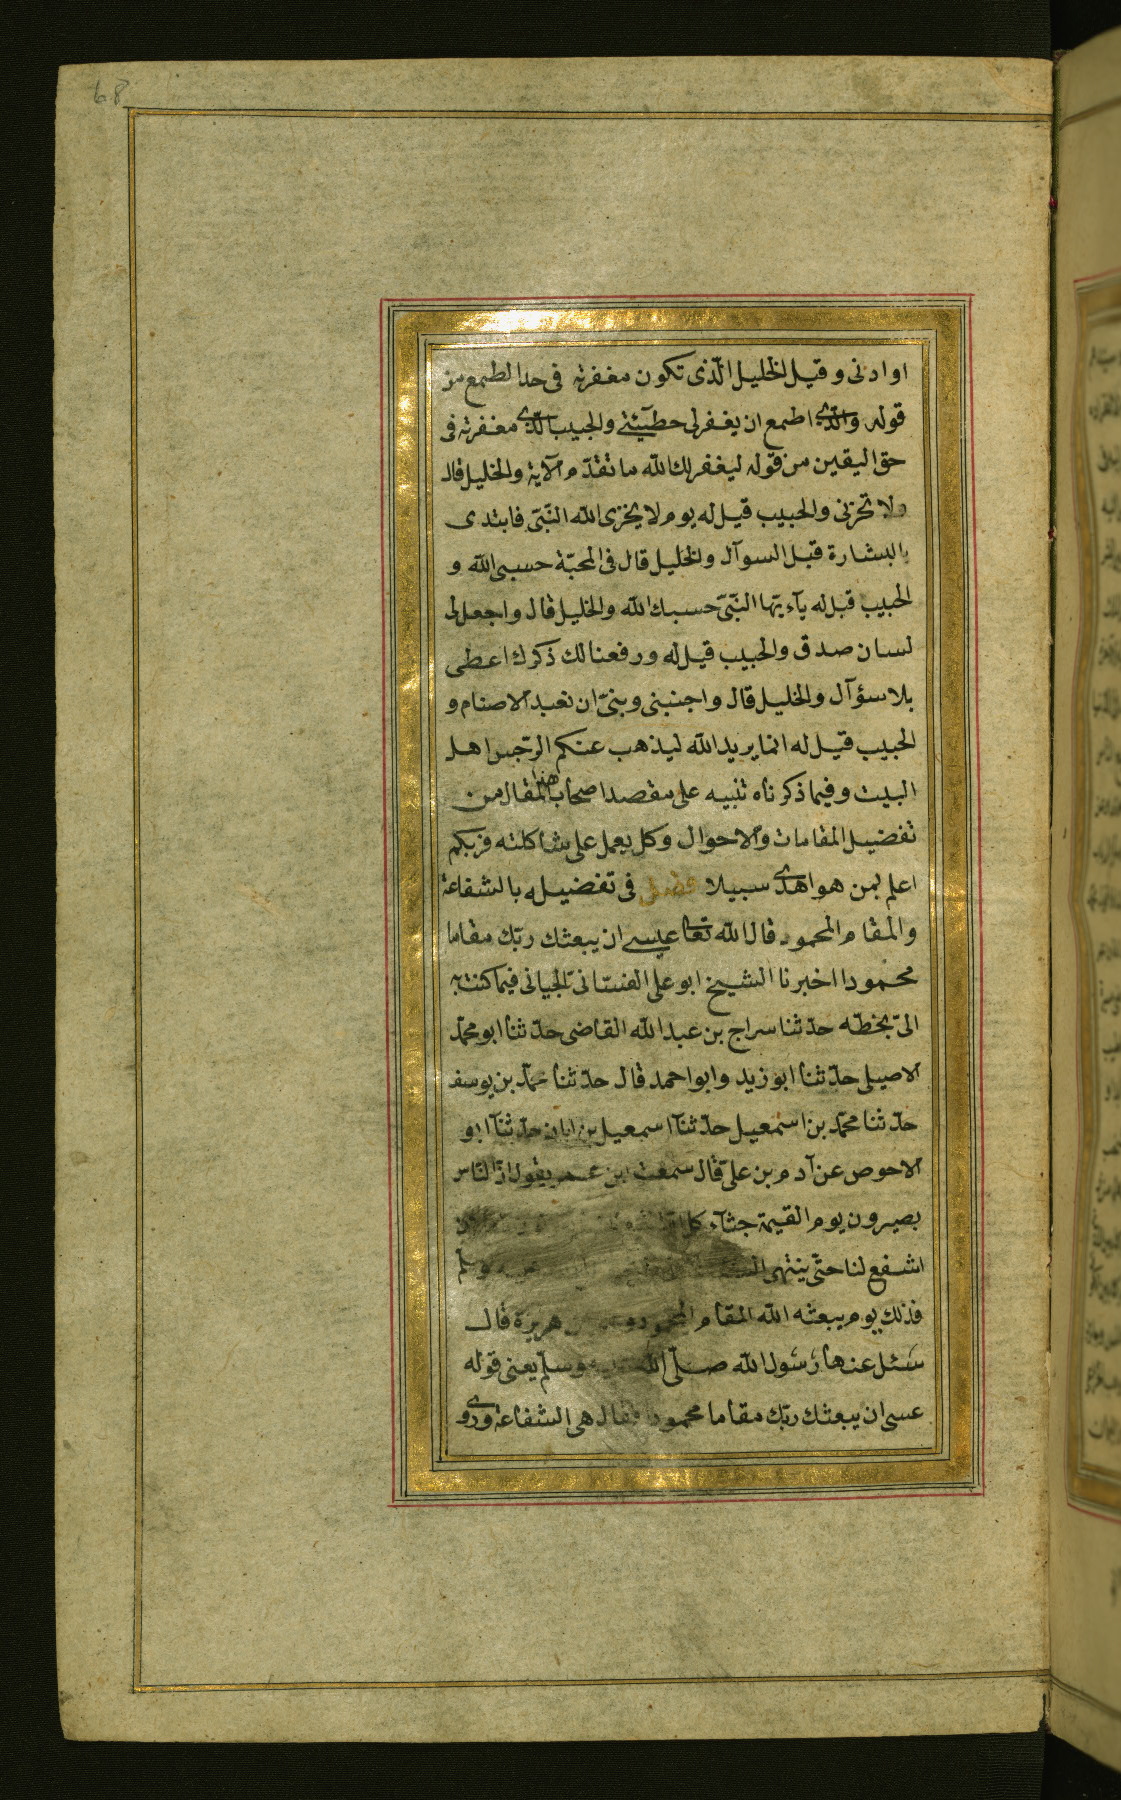 68
او ادنى وقيل الخليل الّذى تكون مغفرته فى حد الطمع من
قوله والّذى اطمع ان يغفر لى خطيئتى والحبيب الّذى مغفرته فى
حق اليقين من قوله ليغفر لك الله ما تقدّم الآية والخليل قال
ولا تخزنى والحبيب قيل له يوم لا يخزى الله النّبىّ فابتدى
بالبشارة قبل السوآل والخليل قال فى المحبّة حسبى الله و
الحبيب قيل له يآء يّها النّبىّ حسبك الله والخليل قال واجعل لى
لسان صدق والحبيب قيل له ورفعنا لك ذكرك اعطى
بلا سؤآل والخليل قال واجنبنى وبنىّ ان نعبد الاصنام و
الحبيب قيل له انما يريد الله ليذهب عنكم الرّجس اهل
البيت وفيما ذكرناه تنبيه على مقصد اصحاب هذا المقال من
تفضيل المقامات والاحوال وكل يعمل على شاكلته فربكم
اعلم بمن هو اهدى سبيلا فصل فى تفضيله بالشفاعة
والمقام المحمود قال الله تعا عسى ان يبعثك ربّك مقاما
محمودا اخبرنا الشيخ ابو على الغسّانىّ الجيانى فيما كتب به
الىّ بخطّه حدّثنا سراج بن عبد الله القاضى حدّثنا ابو محمّد
الاصيلى حدّثنا ابو زيد وابو احمد قال حدّثنا محمّد بن يوسف
حدّثنا محمّد بن اسمعيل حدّثنآ اسمعيل بن ابان حدّثنآ ابو
الاحوص عن آدم بن علىّ قال سمعت ابن عمر يقول انّ النّاس
يصيرون يوم القيمة جثآء كل
اشفع لنا حتّى ينتهى وسلّم
فذلك يوم يبعثه الله المقام المحمود هريرة قال
سئل عنها رسول الله صلّى الله وسلّم يعنى قوله
عسى ان يبعثك ربّك مقاما محمودا فقال هى الشفاعة وروى